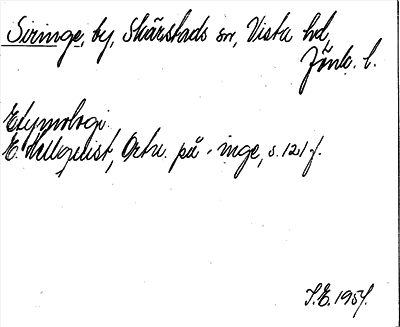 Siringe, by, Skärstads sn, Vista hd,
Jönk. l.
Etymologi.
E. Hellquist, Ortn. på -inge, s. 121 f.
S.E. 1957.